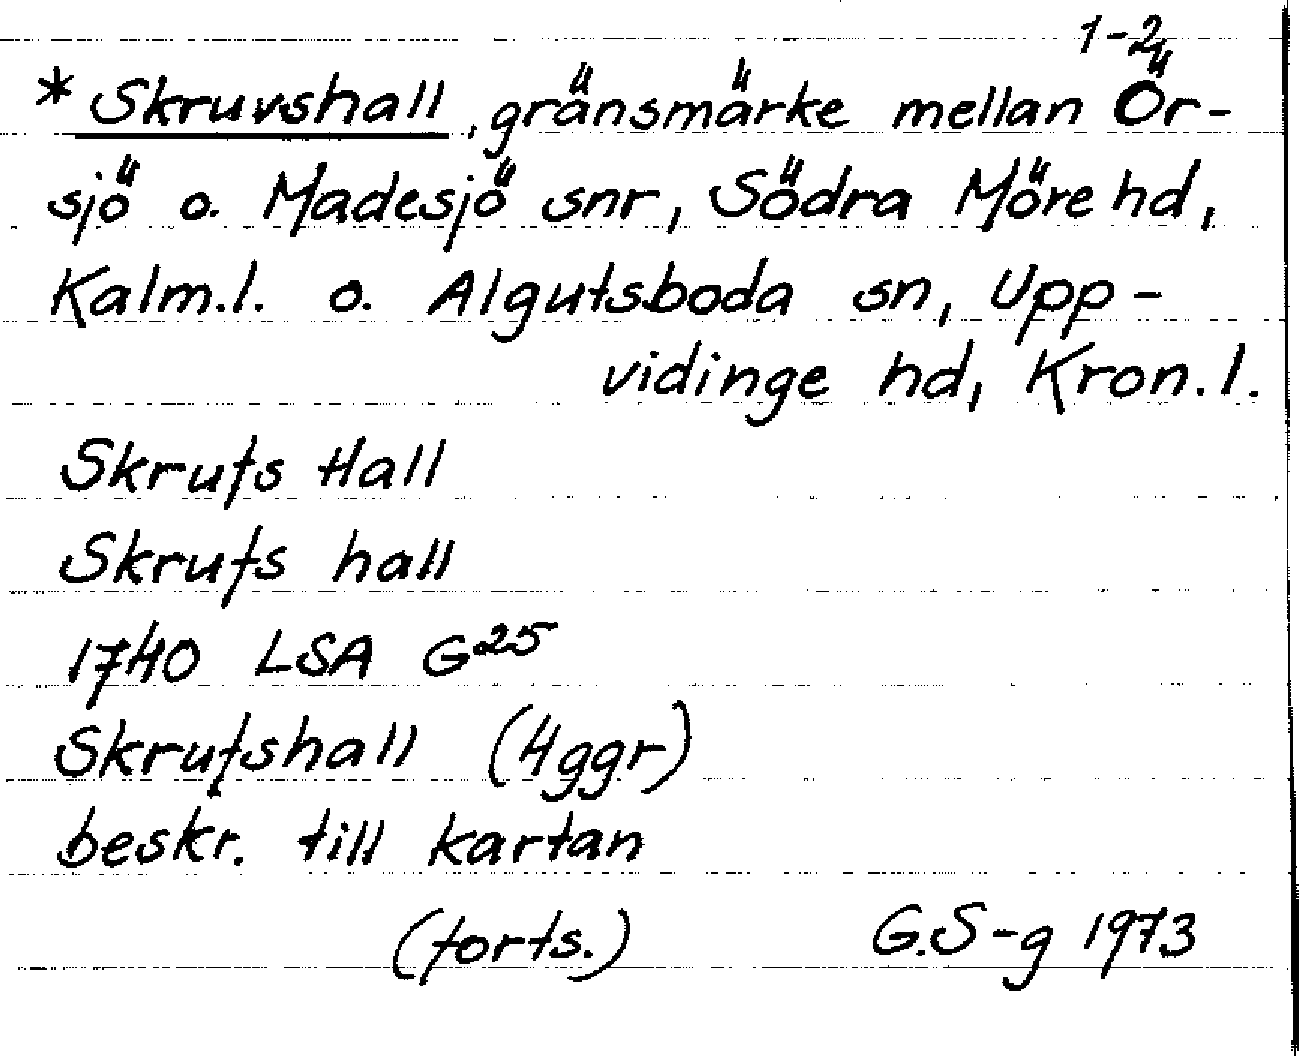 1-2
* Skruvshall, gränsmärke mellan Ör-
sjö o. Madesjö snr, Södra Möre hd,
Kalm.l. o. Algutsboda sn, Upp-
vidinge hd, Kron.l.
Skrufs Hall
Skrufs hall
1740 LSA G25
Skrufshall (4ggr)
beskr. till kartan
(forts.) G.S-g 1973